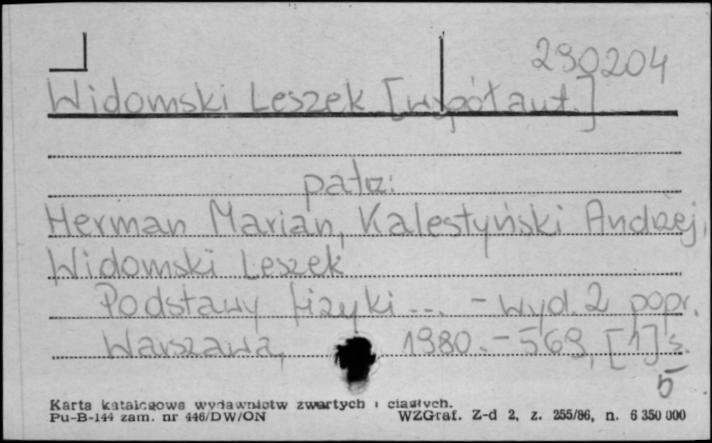 290204
Widomski Leszek [współaut.]
patrz:
Herman Marian, Kalestyński Andrzej,
Widomski Leszek
Podstawy fizyki ... - Wyd. 2 popr.
Warszawa, 1980. - 569, [1] s.
5
Karta katalogowa wydawnictw zwartych i ciągłych.
Pu-B-144 zam. nr 446/DW/ON WZGraf. Z-d 2, z. 255/86, n. 6 350 000